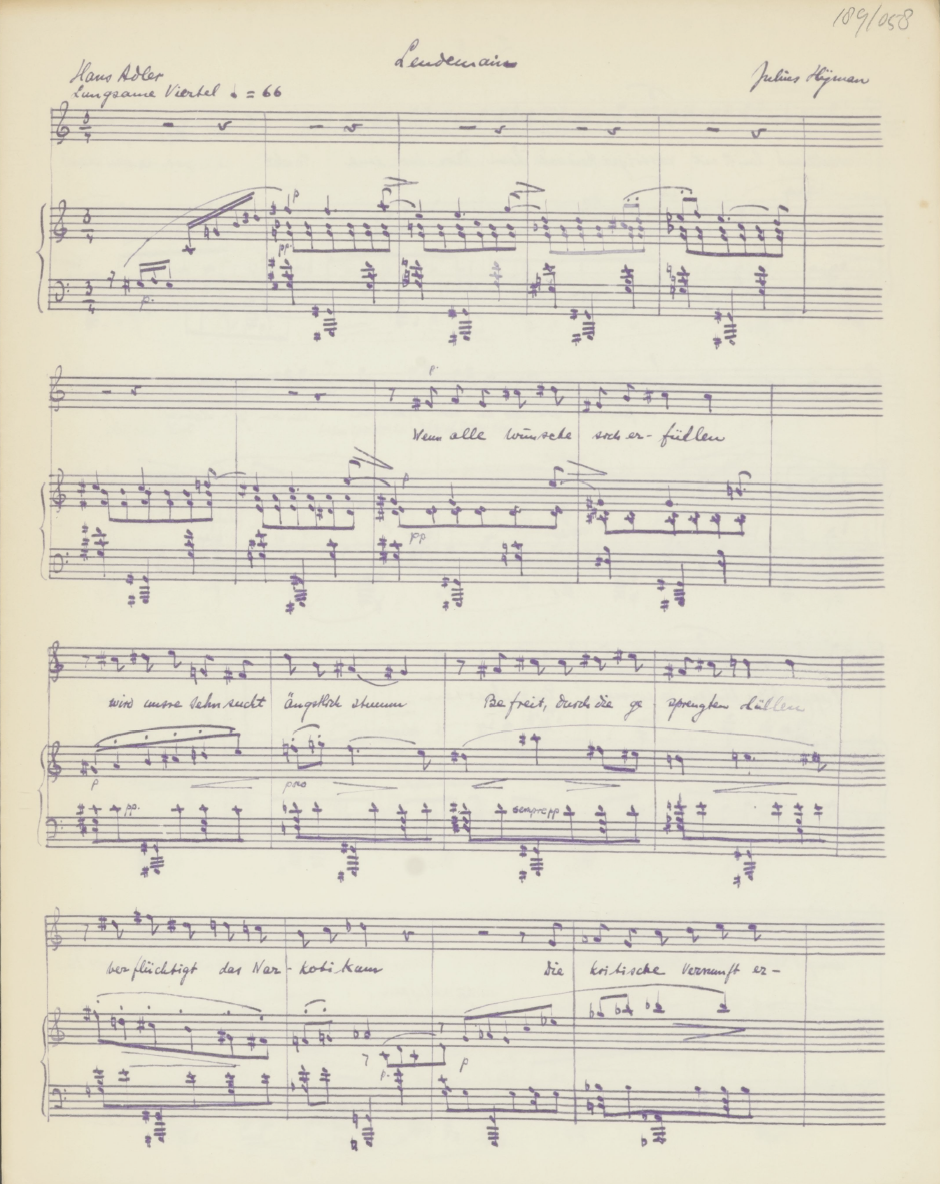 189/058
Lendemain
Hans Adler
Julius Hijman
Langsame Viertel ♩ = 66
3/4
p
pp
3/4
p.
3/4
p
Wenn alle Wünsche sich er- füllen
p
pp
wird unsre Sehnsucht ängstlich stumm Befreit, durch die ge sprengten Hüllen
p
pp. sempre pp
verflüchtigt das Nar- kotikum Die kritische Vernunft er-
p. p